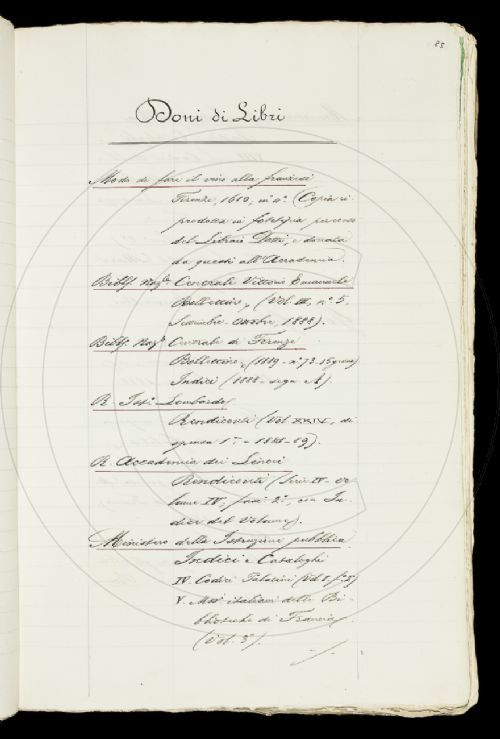 85
Doni di Libri
Modo di fare il vino alla franzese
Firenze, 1610, in 4° (Copia ri-
prodotta in fotoligia per cura
del Libraio Dotti, e donata
da questi all'Accademia.
Bibl. Naz.le Centrale Vittorio Emanuele
Bollettino, (Vol. III, n° 5,
Settembre-Ottobre, 1888).
Bibl. Naz.le Centrale di Firenze
Bollettino, (1889 - n° 73 - 15 genn.)
Indici (1888 - segn. A).
R. Ist.° Lombardo
Rendiconti (Vol. XXIV, di-
spensa 1ª - 1888-89).
R. Accademia dei Lincei
Rendiconti (Serie IV - Vo-
lume IV, fasc. 2°, con In-
dice del Volume).
Ministero della Istruzione pubblica
Indici e Cataloghi
IV. Codici Palatini (Vol. I. f° 8)
V. Mss. italiani delle Bi-
blioteche di Francia
(Vol. 3°).